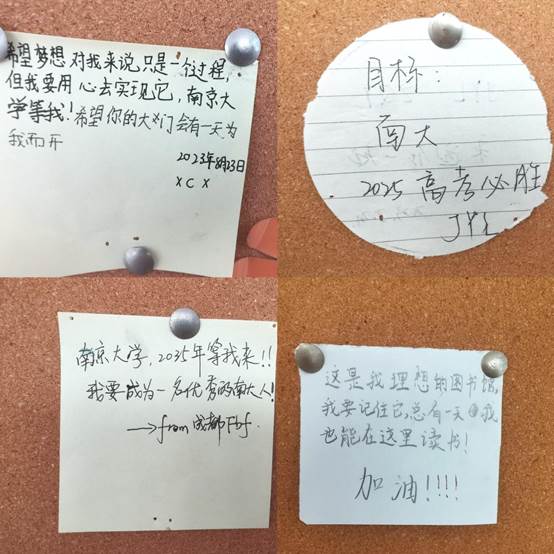 希望梦想对我来说只是一个过程,
但我要用心去实现它,南京大
学等我!希望你的大门会有一天为
我而开
2023年8月23日
XCX
目标:
南大
2025高考必胜
JYL
南京大学,2035年等我来!!
我要成为一名优秀的南大人!
→from成都Fbf.
这是我理想的图书馆,
我要记住它,总有一天我
也能在这里读书!
加油!!!!